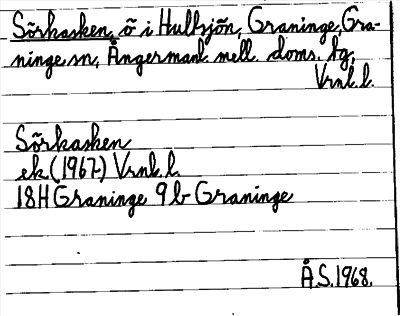 Sörkasken, ö i Hultsjön, Graninge, Gra-
ninge sn, Ångermanl. mell. doms. bg,
Vrnl. l.
Sörkasken
ek (1967) Vrnl. l.
18H Graninge 9b Graninge
Å.S. 1968.